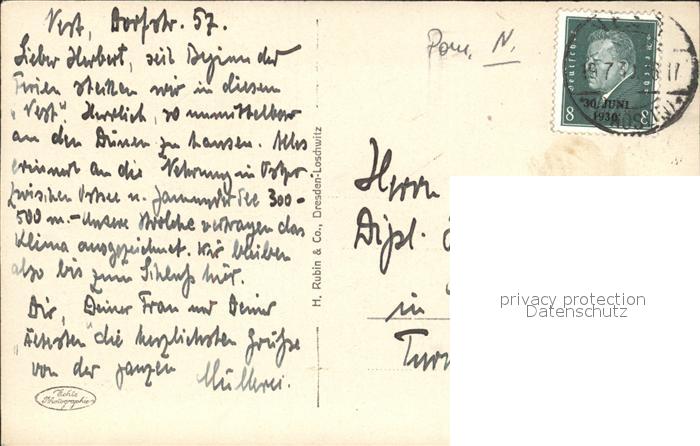 Vest, Dorfstr. 57.
Lieber Herbert, seit Beginn der
Ferien stecken wir in diesem
„Vest". Herrlich, so unmittelbar
an den Dünen zu hausen. Alles
erinnert an die Nehrung in Ostpr.
Zwischen Ostsee u. Jamunder See 300-
500 m. - Unsere Strolche vertragen das
Klima ausgezeichnet. Wir bleiben
also bis zum Schluß hier.
Dir, Deiner Frau und Deiner
„Ältesten" die herzlichsten Grüße
von der ganzen
Müllerei.
Echte
Photographie
H. Rubin & Co., Dresden-Loschwitz
Pom. N.
deutsches
30. JUNI
1930
8 8
Herrn
Dipl.
in
privacy protection
Datenschutz